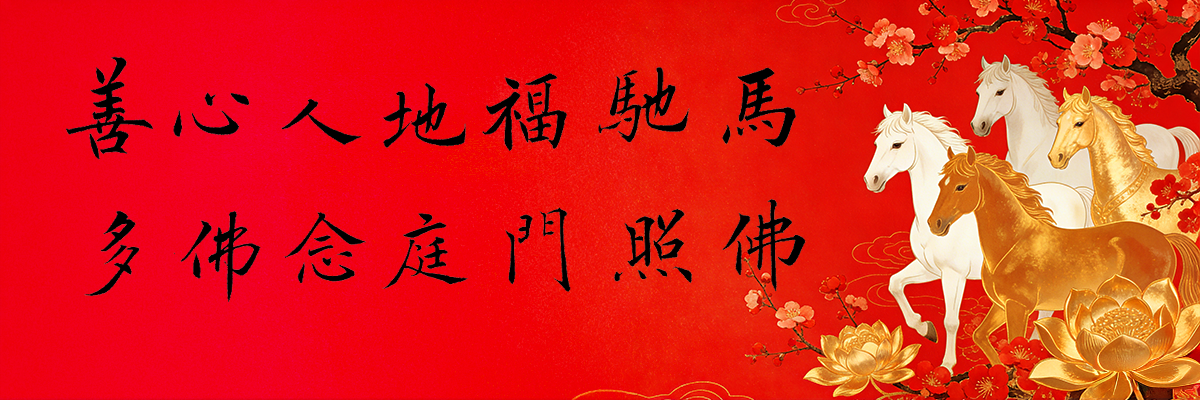 馬馳福地人心善
佛照門庭念佛多